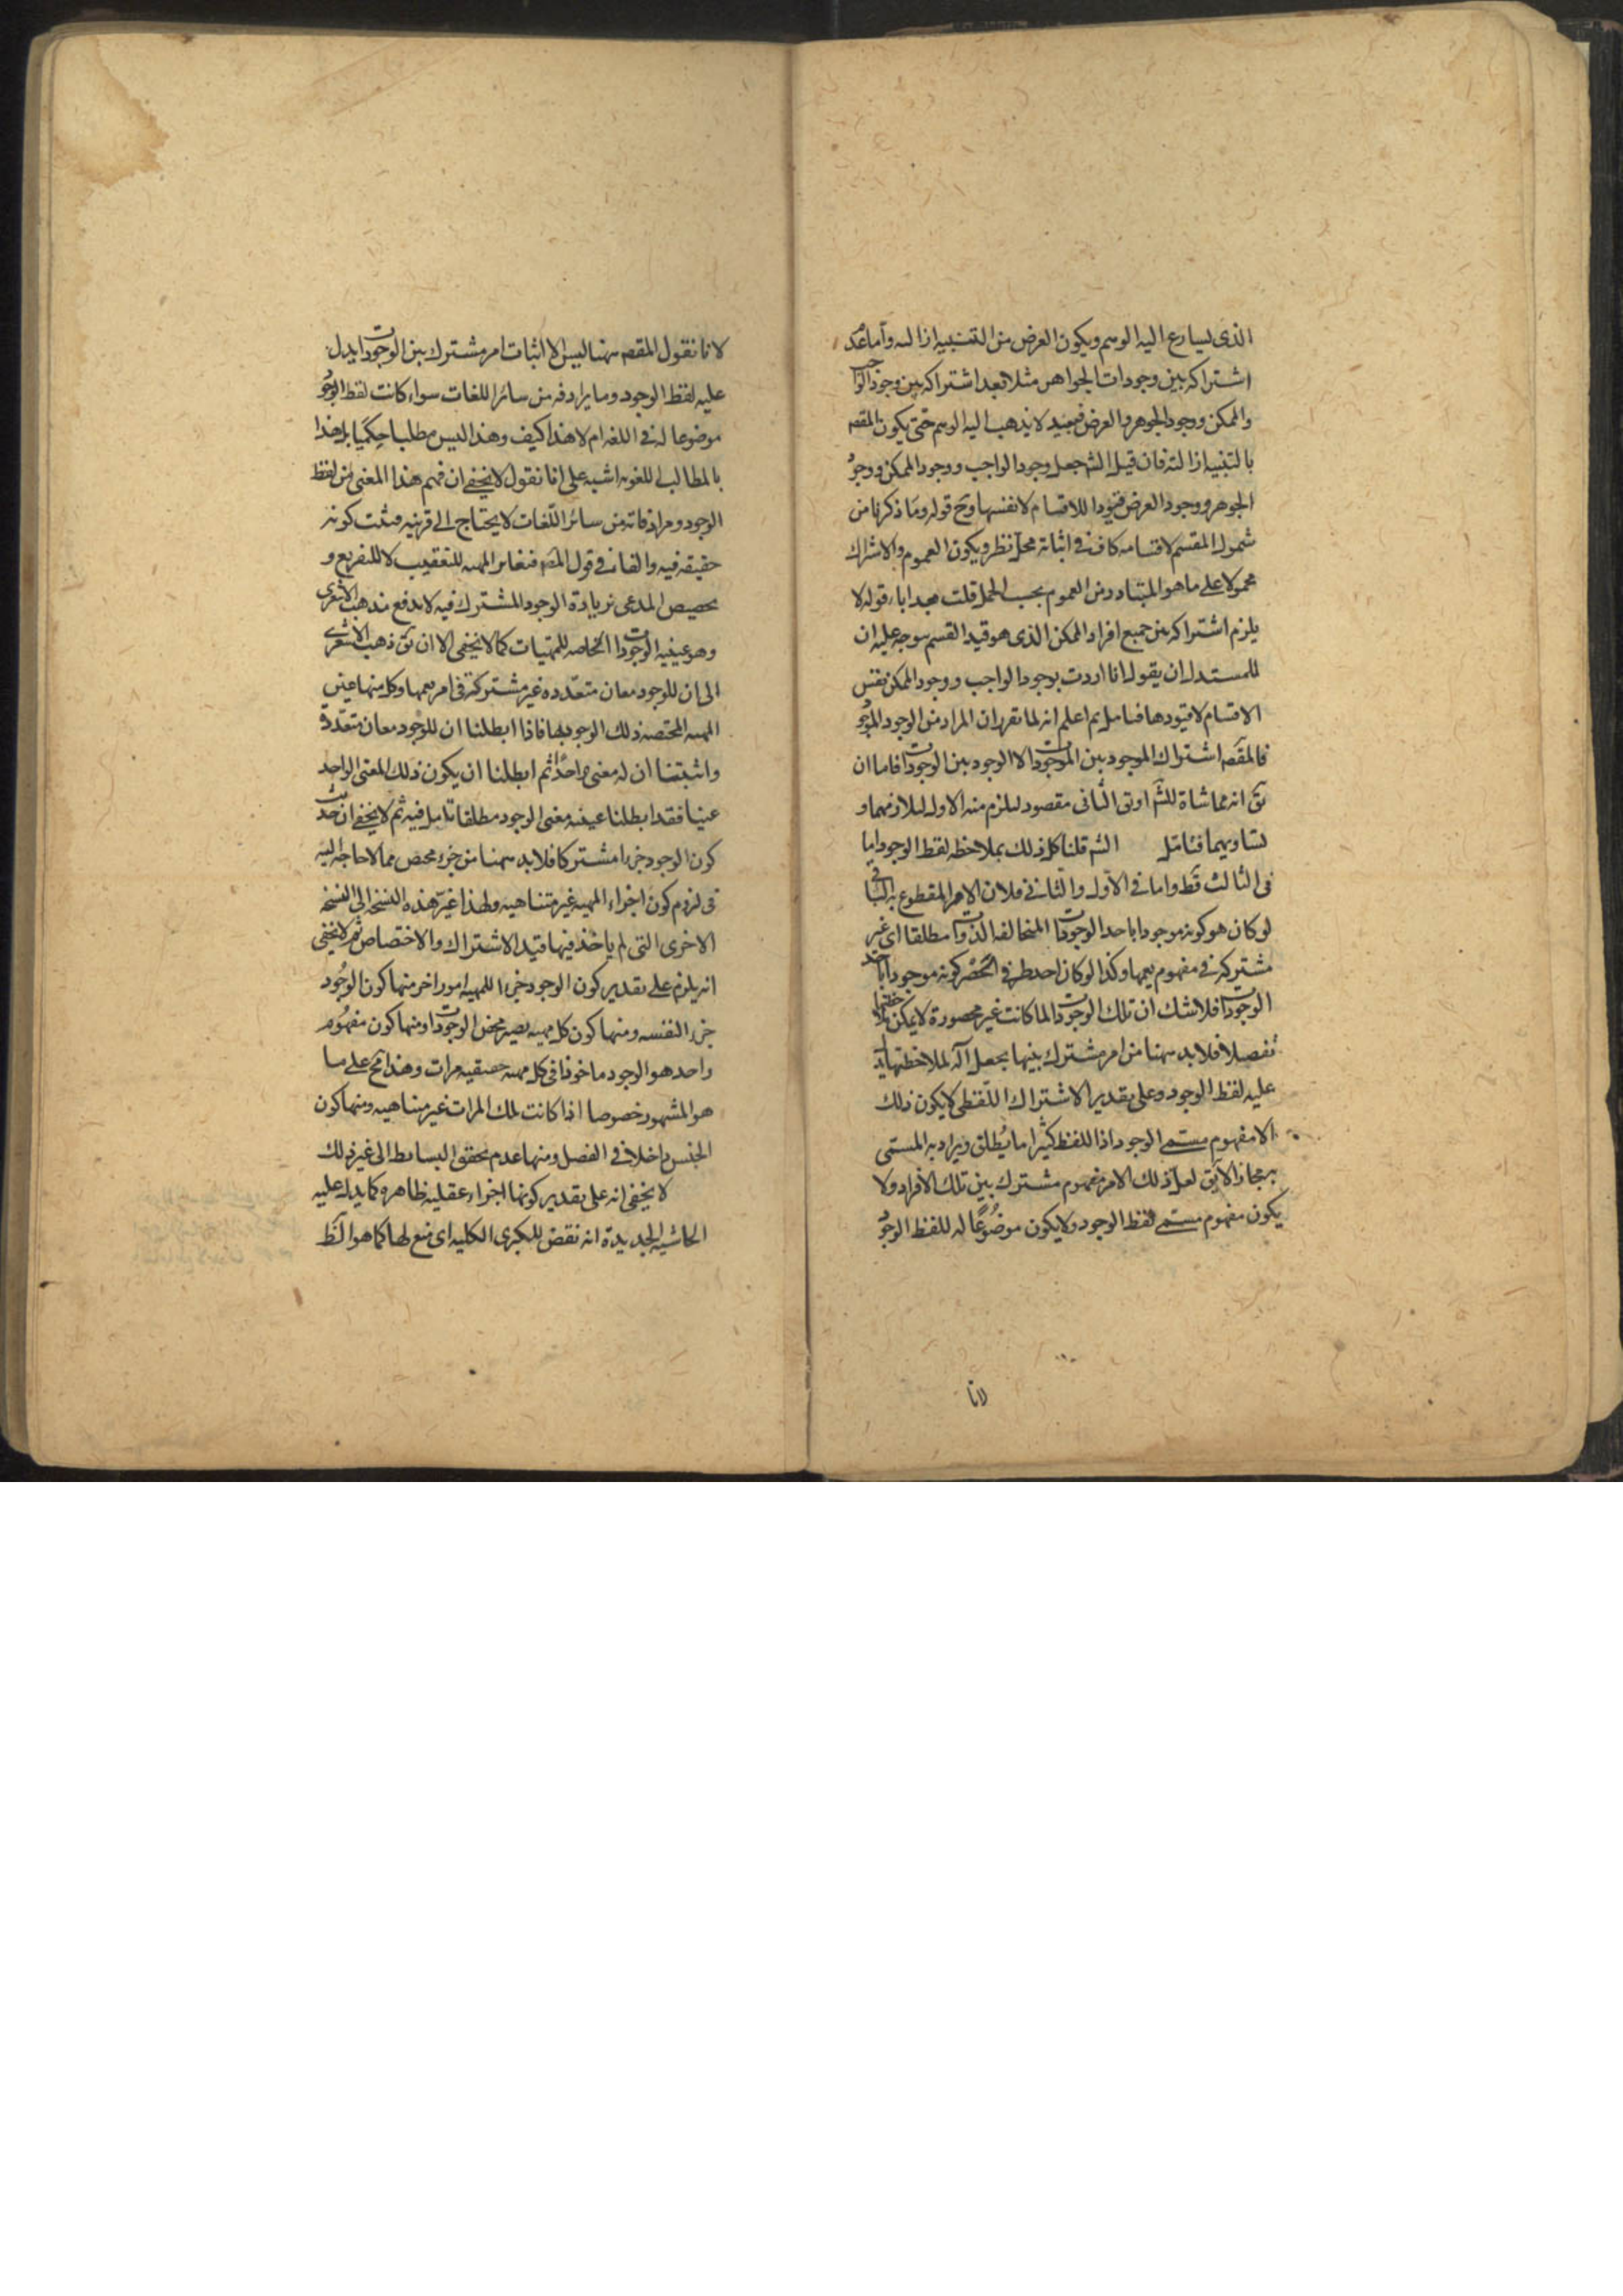 الذى يسارع اليه الوهم ويكون الغرض من التنبيه ازالته وأما عدم
اشتراكه بين وجودات الجواهر مثلا بعد اشتراكه بين وجود الواجب
والممكن ووجود الجوهر والعرض فبعيد لا يذهب اليه الوهم حتى يكون المقصود
بالتنبيه ازالته فان قيل الشم جعل وجود الواجب ووجود الممكن ووجود
الجوهر ووجود العرض قيودا للاقسام لا نفسها وح قوله وما ذكرنا من
شمول المقسم لاقسامه كاف فى اثباته محل نظر ويكون العموم والاشتراك
محمولا على ما هو المتبادر من العموم بحسب الحمل قلت بعد اباء قوله لا
يلزم اشتراكه بين جميع افراد الممكن الذى هو قيد القسم يتوجه عليه ان
للمستدل ان يقول انا اردت بوجود الواجب ووجود الممكن نفس
الاقسام لا قيودها فتامل ثم اعلم انه لما تقرر ان المراد من الوجود الموجود
فالمقصه اشتراك الموجود بين الموجودات لا الوجود بين الوجودات فاما ان
يق انه مماشاة للشم او يق الثانى مقصود ليلزم منه الاول لتلازمهما و
تساويهما فتامل الشم قلنا كل ذلك بملاحظه لفظ الوجود اما
فى الثالث فظ واما فى الاول والثانى فلان الامر المقطوع به الباقى
لو كان هو كونه موجودا باحد الوجودات المتخالفه الذوات مطلقا اى غير
مشتركه فى مفهوم يعمها وكذا لو كان احد طرفى الحصر كونه موجودا باحد
الوجودات فلا شك ان تلك الوجودات لما كانت غير محصورة لا يمكن ملاحظتها
تفصيلا فلا بد ههنا من امر مشترك بينها يجعل آلة لملاحظتها يدل
عليه لفظ الوجود وعلى تقدير الاشتراك اللفظى لا يكون ذلك
الا مفهوم مسمى الوجود اذ اللفظ كثيرا ما يطلق ويراد به المسمى
به مجازا لا يق لعل ذلك الامر مفهوم مشترك بين تلك الافراد ولا
يكون مفهوم مسمى لفظ الوجود ولا يكون موضوعا له للفظ الوجود
لانا
لانا نقول المقصه ههنا ليس الا اثبات امر مشترك بين الوجودات يدل
عليه لفظ الوجود وما يرادفه من سائر اللغات سواء كانت لفظ الوجود
موضوعا له فى اللغه ام لا هذا كيف وهذا ليس مطلبا حكميا بل هذا
بالمطالب اللغويه اشبه على انا نقول لا يخفى ان فهم هذا المعنى من لفظ
الوجود ومرادفاته من سائر اللغات لا يحتاج الى قرينه فثبت كونه
حقيقه فيه والفاء فى قول المصه فتغاير المهيه للتعقيب لا للتفريع و
تخصيص المدعى بزيادة الوجود المشترك فيه لا يدفع مذهب الاشعرى
وهو عينيه الوجودات الخاصه للمهيات كما لا يخفى الا ان يق ذهب الاشعرى
الى ان للوجود معان متعدده غير مشتركة فى امر يعمها وكل منها عين
المهيه المختصه ذلك الوجود بها فاذا ابطلنا ان للوجود معان متعددة
واثبتنا ان له معنى واحدا ثم ابطلنا ان يكون ذلك المعنى الواحد
عينا فقد ابطلنا عينيه معنى الوجود مطلقا تامل فيه ثم لا يخفى ان حديث
كون الوجود جزءا مشتركا فلا بد ههنا من جزء مخصص مما لا حاجه اليه
فى لزوم كون اجزاء المهيه غير متناهيه ولهذا غير هذه النسخه الى النسخه
الاخرى التى لم ياخذ فيها قيد الاشتراك والاختصاص ثم لا يخفى
انه يلزم على تقدير كون الوجود جزءا للمهيه امور اخر منها كون الوجود
جزء النفسه ومنها كون كل مهيه بعينه محض الوجودات ومنها كون مفهوم
واحد هو الوجود ماخوذا فى كل مهيه حقيقيه مرات وهذا مح على ما
هو المشهور خصوصا اذا كانت تلك المرات غير متناهيه ومنها كون
الجنس داخلا فى الفصل ومنها عدم تحقق البسايط الى غير ذلك
لا يخفى انه على تقدير كونها اجزاء عقليه ظاهره كما يدل عليه
الحاشيه الجديدة انه نقض للكبرى الكليه اى منع لها كما هو الظ